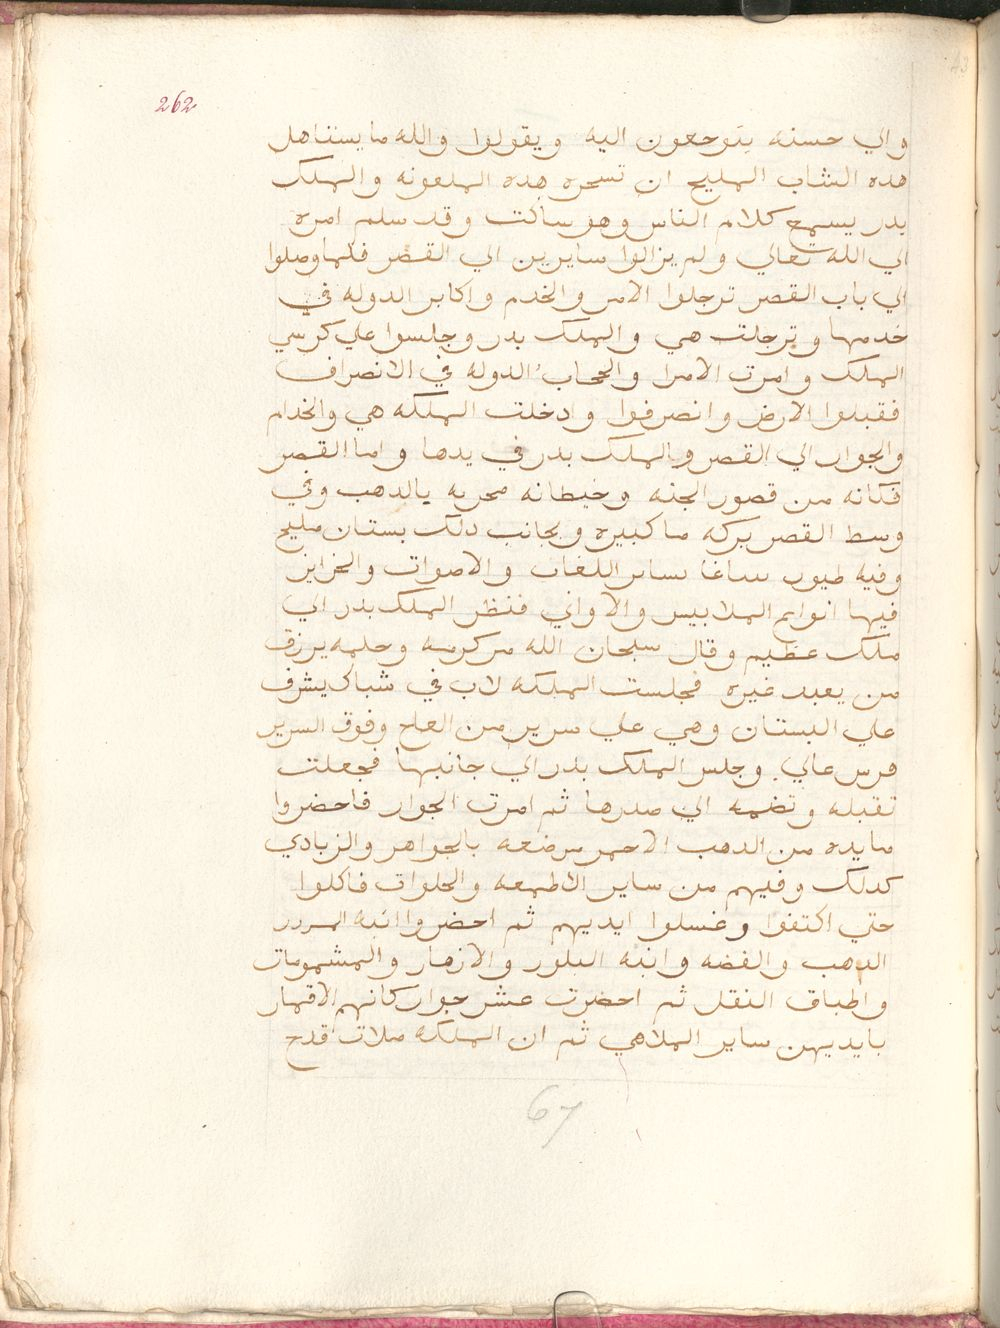 262
والي حسنه يتوجعون اليه ويقولوا والله ما يستاهل
هده الشاب المليح ان تسحره هده الملعونه والملك
بدر يسمع كلام الناس وهو ساكت وقد سلم امره
الي الله تعالي ولم يزالوا سايرين الي القصر فلما وصلوا
الي باب القصر ترجلوا الامر والخدم واكابر الدوله في
خدمها وترجلت هي والملك بدر وجلسوا علي كرسي
الملك وامرت الامرا والحجاب الدوله في الانصراف
فقبلوا الارض وانصرفوا وادخلت الملكه هي والخدام
والجوار الي القصر والملك بدر في يدها واما القصر
فكانه من قصور الجنه وحيطانه محريه بالدهب وفي
وسط القصر بركه ما كبيره وبجانب دلك بستان مليح
وفيه طيور تناغا بساير اللغات والاصوات والخزاين
فيها انواع الملابيس والاواني فنظر الملك بدر الي
ملك عظيم وقال سبحان الله من كرمه وحلمه يرزق
من يعبد غيره فجلست الملكه لاب في شباك يشرف
علي البستان وهي علي سرير من العاج وفوق السرير
فرس عالي وجلس الملك بدر الي جانبها فجعلت
تقبله وتضمه الي صدرها ثم امرت الجوار فاحضروا
مايده من الدهب الاحمر مرضعه بالجواهر والزبادي
كدلك وفيهم من ساير الاطعمه والحلوات فاكلوا
حتي اكتفوا وغسلوا ايديهم ثم احضروا انيه
الدهب والفضه وانيه البلور والازهار والمشمومات
واطباق النقل ثم احضرت عشر جوار كانهم الاقمار
بايديهن ساير الملاهي ثم ان الملكه ملات قدح
67